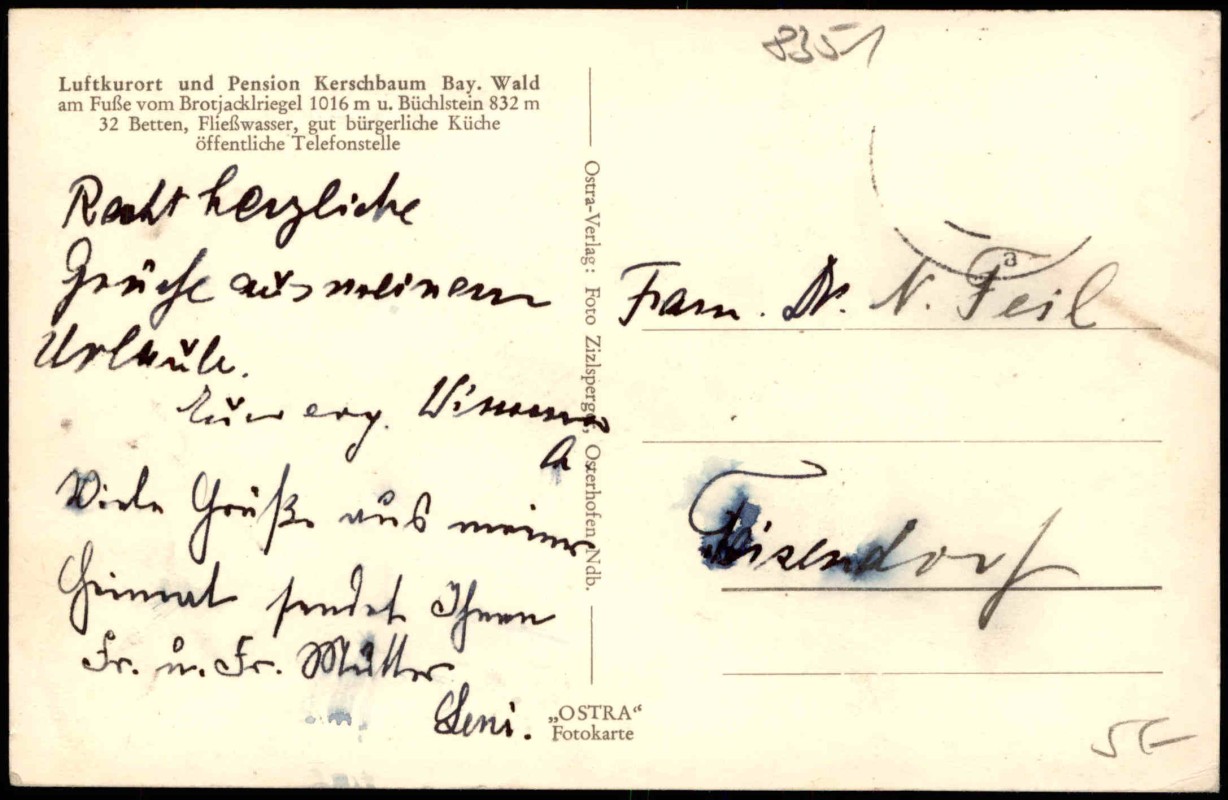 8351
Luftkurort und Pension Kerschbaum Bay. Wald
am Fuße vom Brotjacklriegel 1016 m u. Büchlstein 832 m
32 Betten, Fließwasser, gut bürgerliche Küche
öffentliche Telefonstelle
Recht herzliche
Grüße aus meinem
Urlaub.
Viele Grüße aus meiner
Heimat sendet Ihnen
Fr. u. Fr. Müller
Leni.
Ostra-Verlag: Foto Zizlsperger, Osterhofen, Ndb.
„OSTRA“
Fotokarte
a
Fam. Dr. N. Feil
Teisendorf